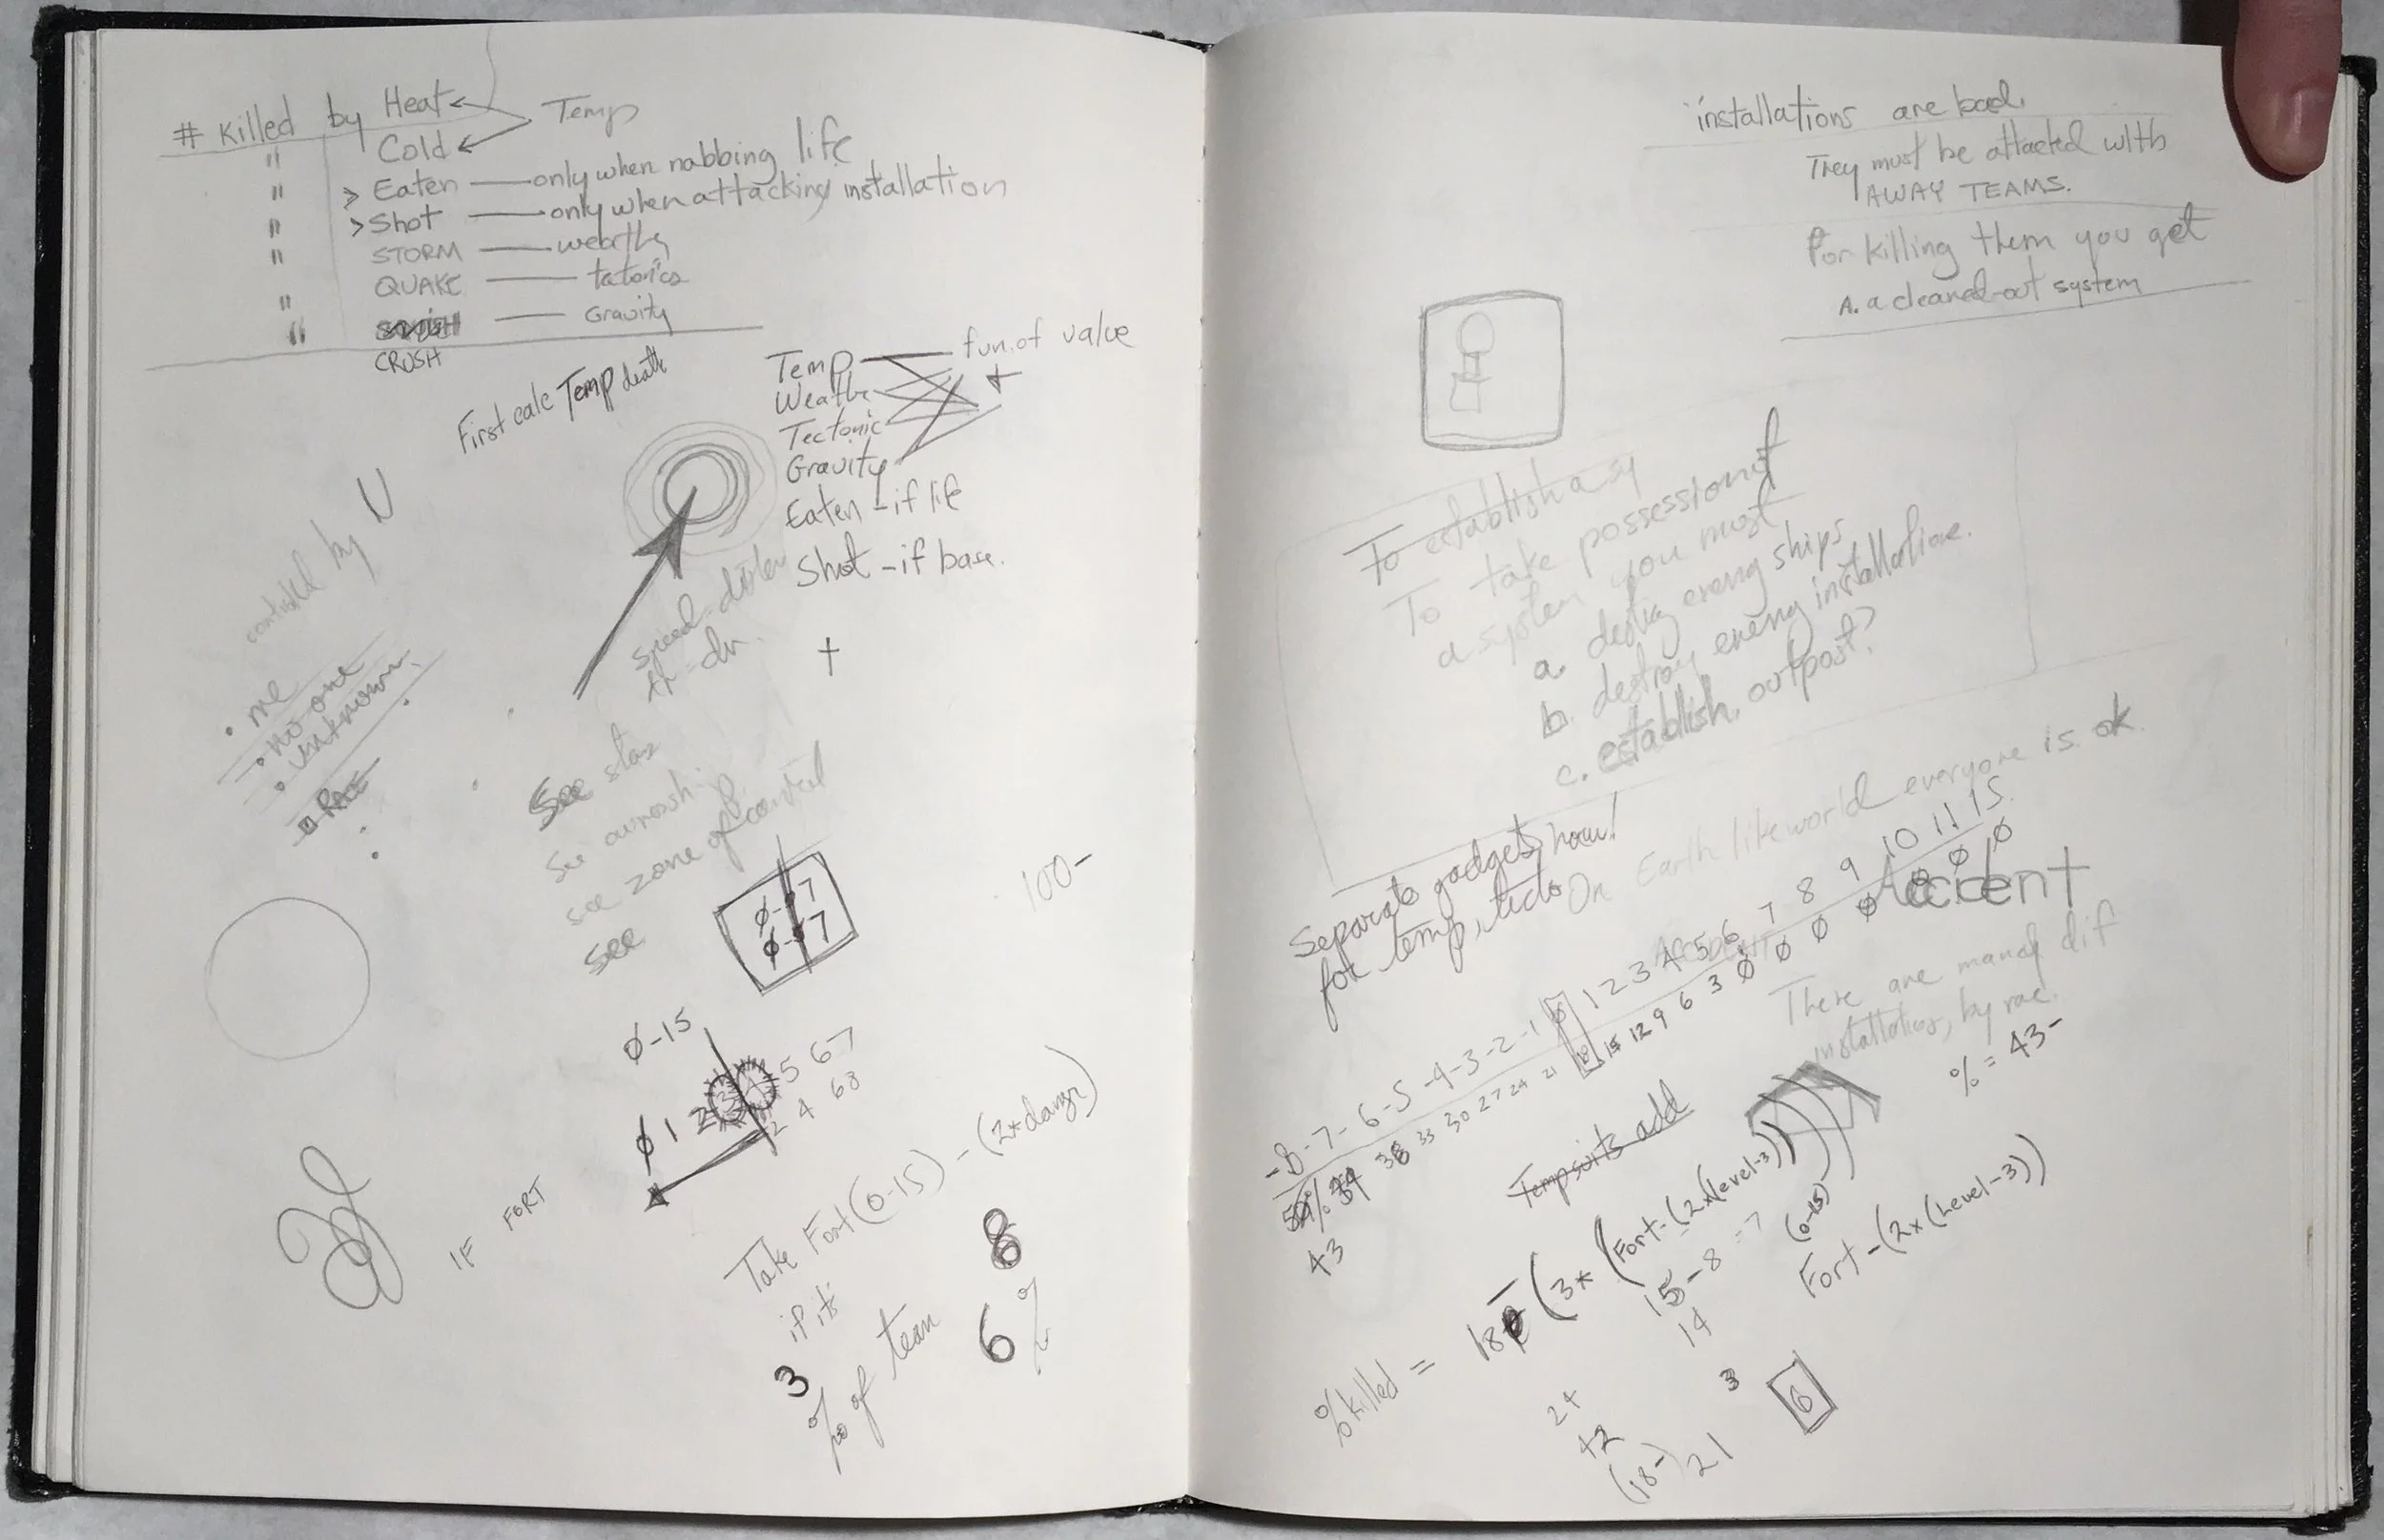 # Killed by Heat
Temp
" Cold
" > Eaten — only when nabbing life
" > Shot — only when attacking installation
" STORM —
QUAKE —
" — Gravity
" CRUSH
First calc Temp death
Temp
fun. of value
Tectonic
Gravity
Eaten - if life
Shot - if base.
by U
• me
• no one
• unknown
RACE
See
see zone of control
see
Ø-7
Ø-7
100-
Ø-15
Ø 1 2 3 4 5 6 7
2 4 6 8
IF FORT
Take Fort (0-15) - (2*
if its
3
% of team
8
6%
installations are bad.
They must be attacked with
AWAY TEAMS.
For killing them you get
A. a cleaned-out system
To establish a sy
To take possession of
a system you must
a. destroy enemy ships
b. destroy enemy installation.
c. establish outpost?
Separate gadgets now!
for temp,
On Earth like world everyone is ok.
Accident
-8-7-6-5-4-3-2-1 0 1 2 3 4 5 6 7 8 9 10 11 15
36 33 30 27 24 21 18 15 12 9 6 3 Ø Ø Ø Ø Ø Ø Ø
43
There are many dif
installations, by race.
% = 43-
Tempsuits add
%killed = 18 - (3* (Fort-(2x(level-3)))
(0-15)
15-8 = 7
14
Fort-(2x(Level-3))
3
6
24
42
(18-) 21